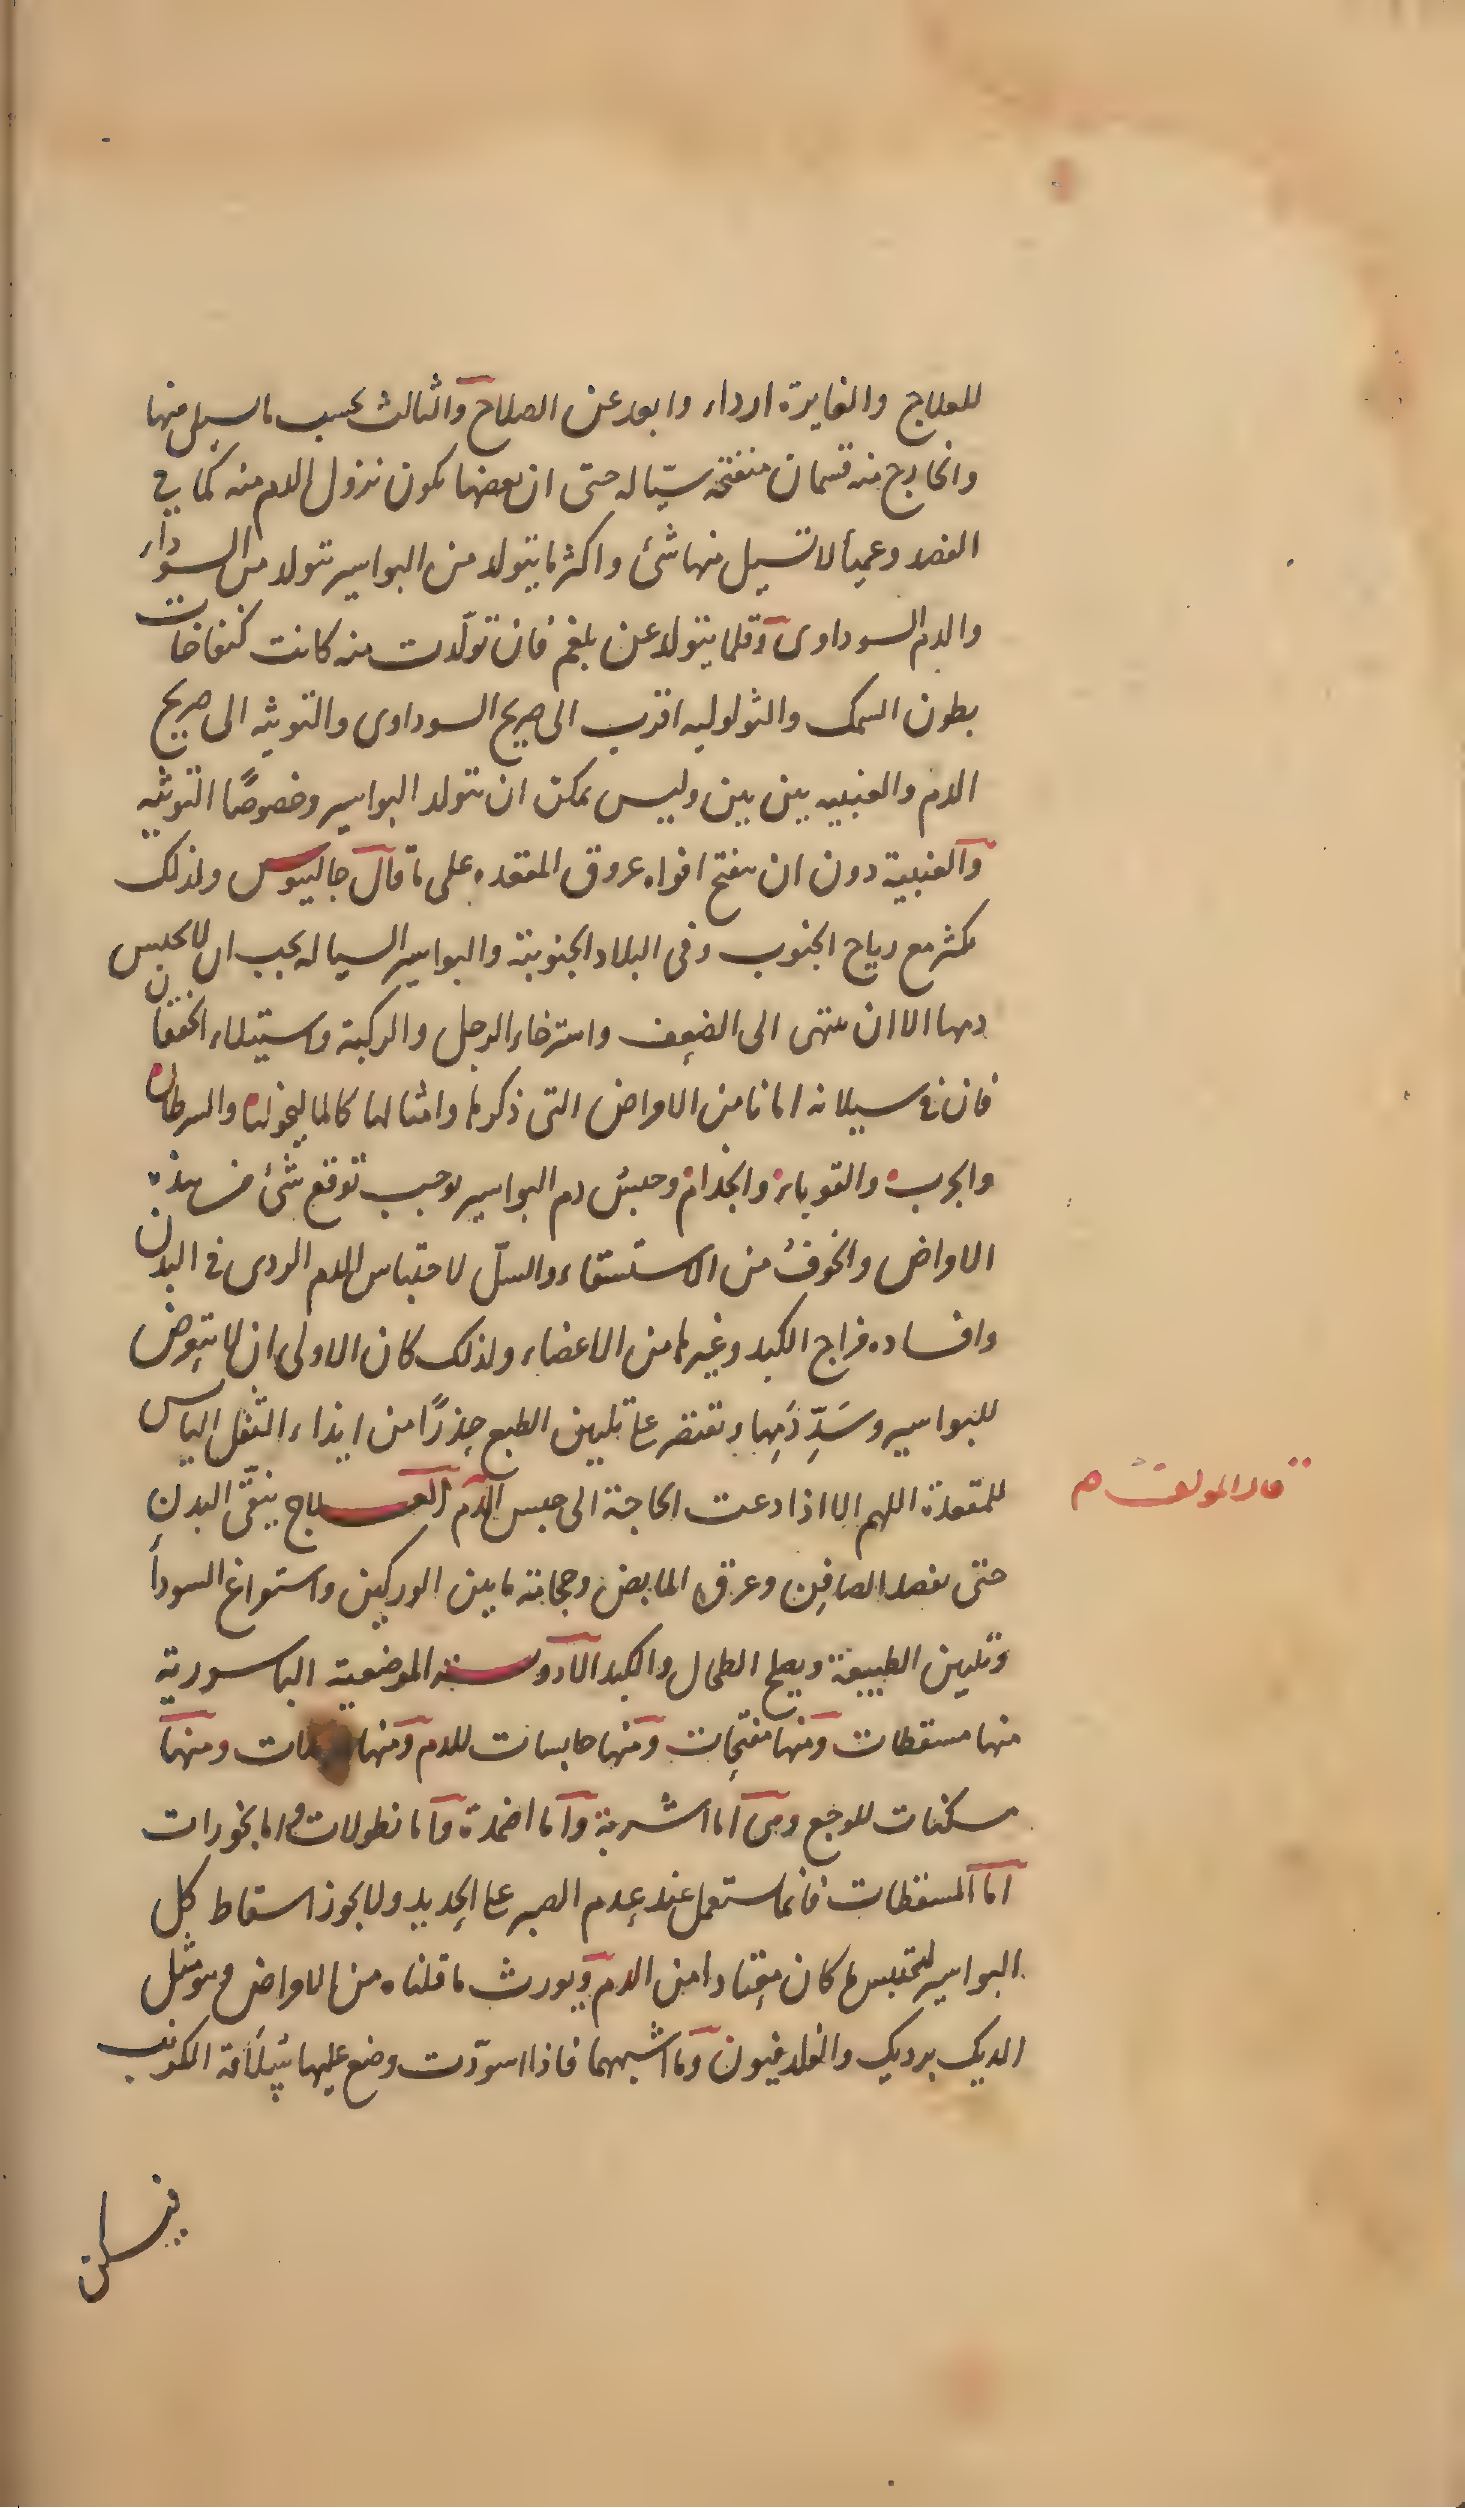 للعلاج والغايرة ارداء وابعد عن الصلاح والثالث بحسب ما يسيل منها
والخارج منه قسمان منفتحة سيّاله حتى ان بعضها يكون نزول الدم منه كما في
الفصد وعميأ لا تسيل منها شئ واكثر ما يتولد من البواسير تتولد من السوداء
والدم السوداوى وقلما يتولد عن بلغم فان تولّدت منه كانت كنفاخات
بطون السمك والثولوليه اقرب الى صريح السوداوى والتوثيه الى صريح
الدم والعنبيه بين بين وليس يمكن ان تتولد البواسير وخصوصًا التوثيه
والعنبية دون ان ينفتح افواه عروق المقعده على ما قال جالينوس ولذلك
يكثر مع رياح الجنوب وفى البلاد الجنوبية والبواسير السياله يجب ان لا يحبس
دمها الا ان ينتهى الى الضعف واسترخاء الرجل والركبة واستيلاء الخفقان
فان فى سيلانه امانا من الامراض التى ذكرها وامثالها كالماليخوليا والسرطان
والجرب والقوباء والجذام وحبس دم البواسير يوجب توقع شئ من هذه
الامراض والخوف من الاستسقاء والسلّ لاحتباس الدم الردى فى البدن
وافساده مزاج الكبد وغيرها من الاعضاء ولذلك كان الاولى ان لا يتعرض
للبواسير وسَدِّ دَمِها ويقتصر على تليين الطبع حذرًا من ايذاء الثفل اليابس
للمقعدة اللهم الا اذا دعت الحاجة الى حبس الدم العلاج ينقّى البدن
قال المولف م
حتى بفصد الصافن وعرق المابض وحجامة ما بين الوركين واستفراغ السودأ
وتليين الطبيعة ويصلح الطحال والكبد الادوية الموضعية الباسورية
منها مسقطات ومنها مفتحات ومنها حابسات للدم ومنها ومنها
مسكنات للوجع وهى اما اشربة واما اضمدة واما نطولات واما بخورات
اما المسقطات فانما يستعمل عند عدم الصبر على الحديد ولا يجوز اسقاط كل
البواسير لتحتبس ما كان معتادا من الدم ويورث ما قلناه من الامراض وهو مثل
الديك برديك والفلدفيون وما اشبههما فاذا اسودّت وضع عليها سُلَاقة الكرنب